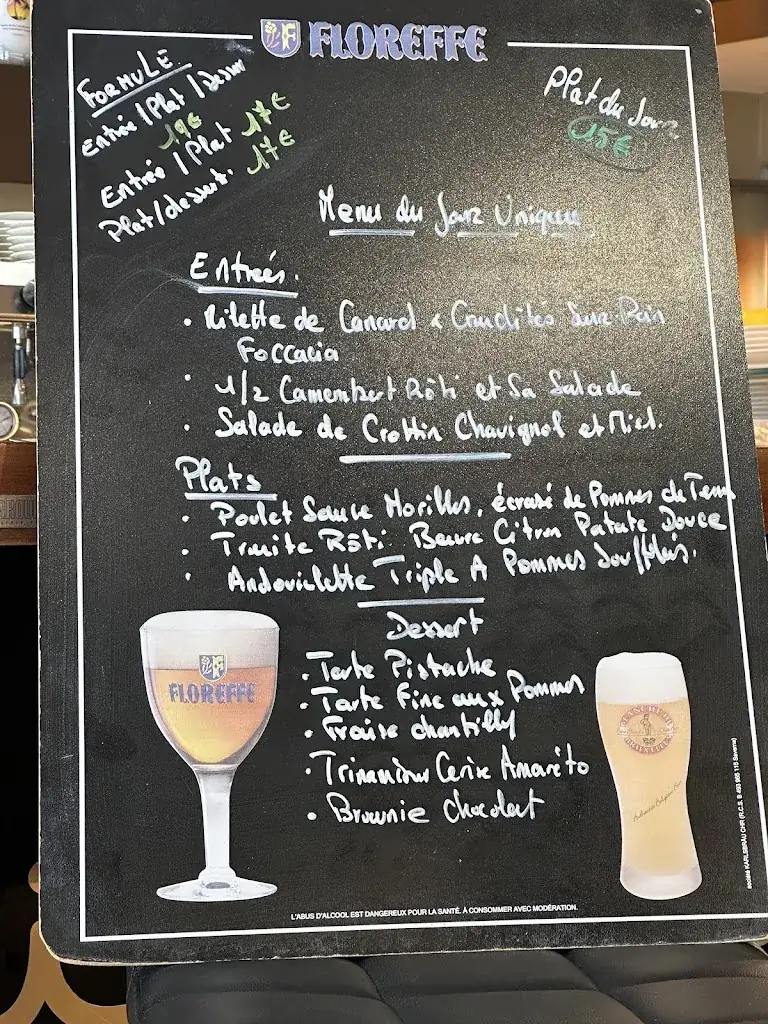 FLOREFFE
FORMULE
Entrée / Plat / dessert
19€
Entrée / Plat 17€
Plat / dessert. 17€
Plat du Jour
15€
Menu du Jour Unique
Entrées.
• Rilette de Canard & Crudités Sur Pain
Foccacia
• 1/2 Camembert Rôti et Sa Salade
• Salade de Crottin Chavignol et Miel.
Plats
• Poulet Sauce Morilles, écrasé de Pommes de Terre
• Truite Rôti Beurre Citron Patate Douce
• Andouillette Triple A Pommes Soufflés.
Dessert
• Tarte Pistache
• Tarte Fine aux Pommes
• Fraise chantilly
• Tiramisu Cerise Amaréto
• Brownie chocolat
FLOREFFE
L'ABUS D'ALCOOL EST DANGEREUX POUR LA SANTÉ. À CONSOMMER AVEC MODÉRATION.
société KARLSBRÄU CHR (R.C.S. B 493 965 115 Saverne)